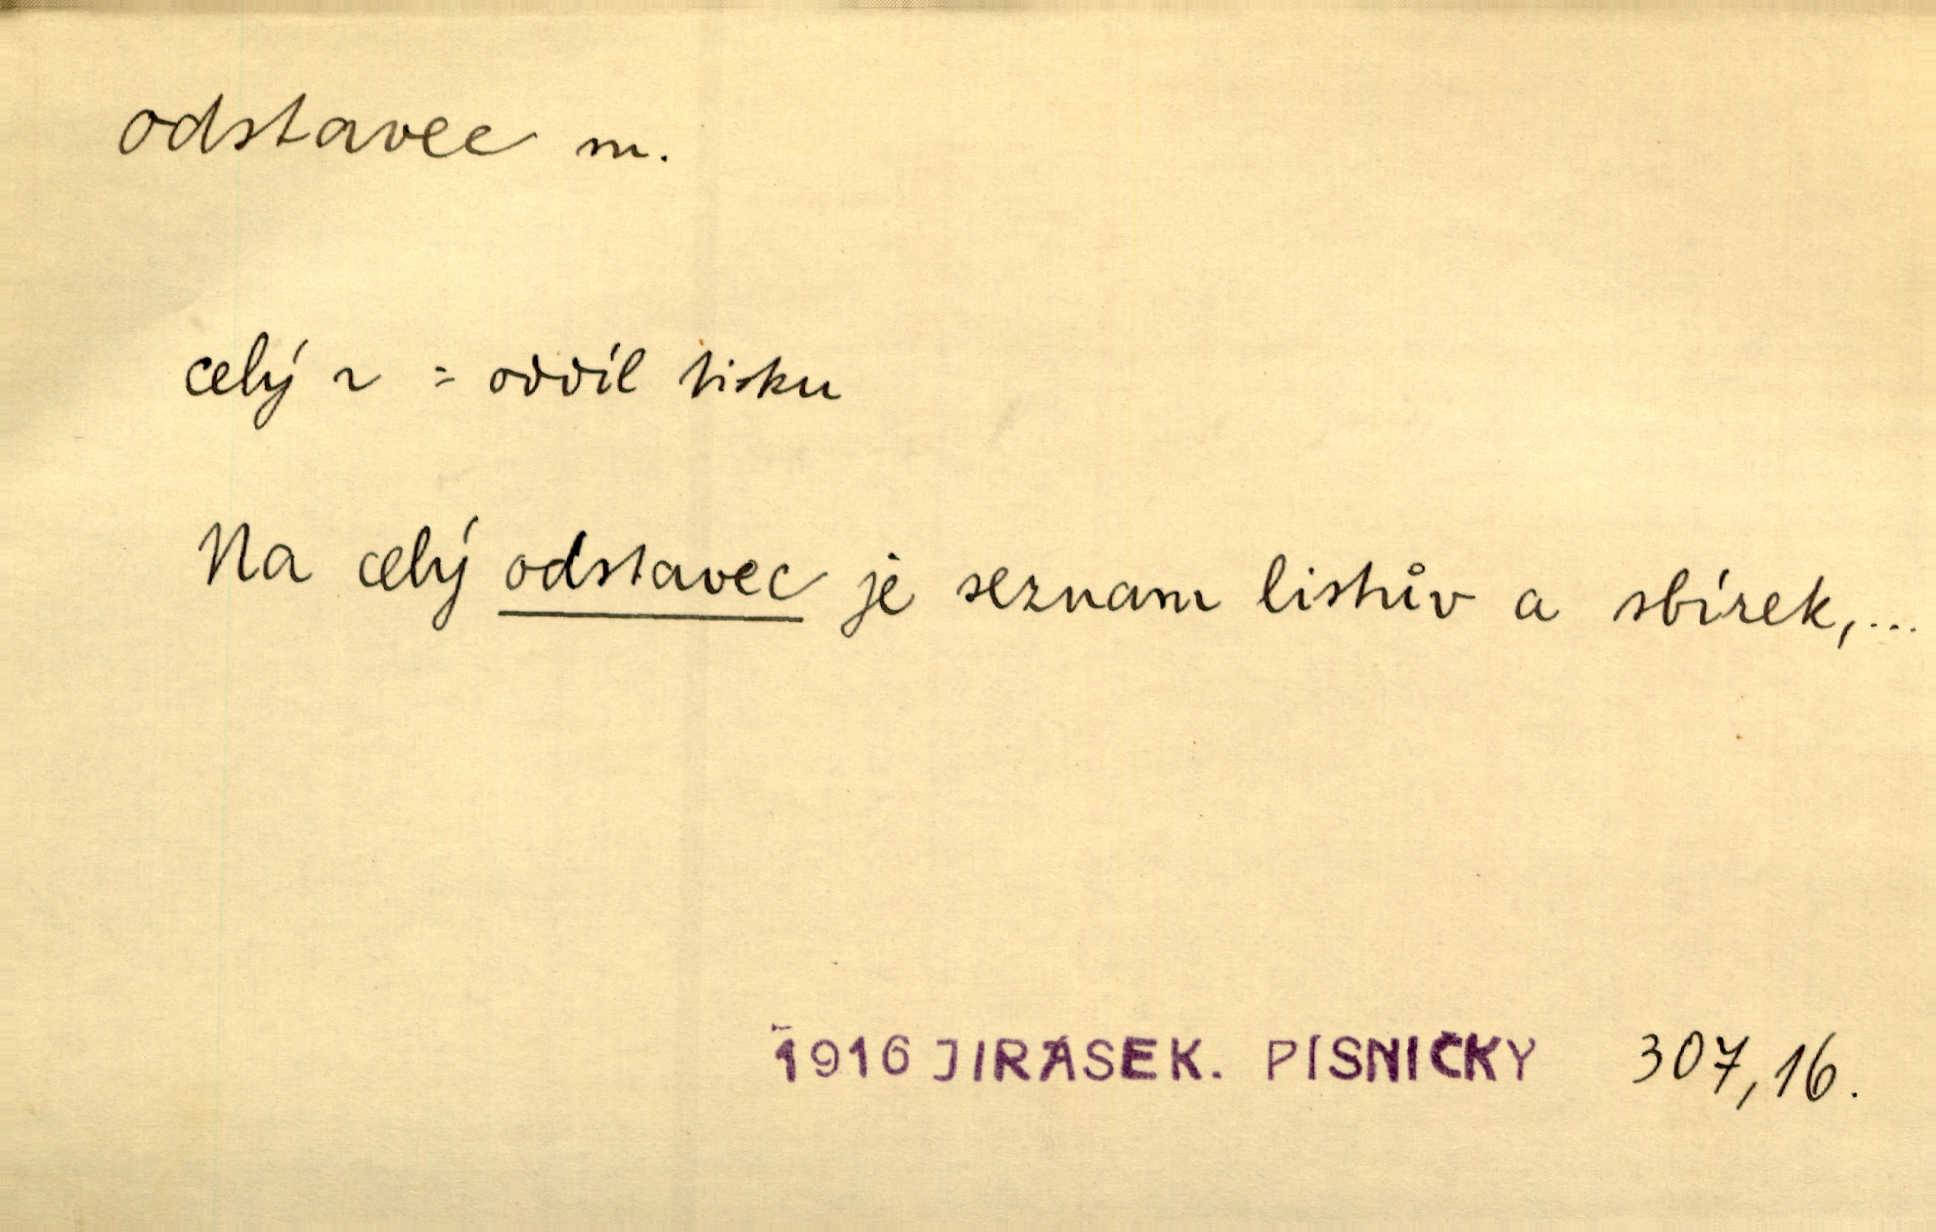 odstavec m.
celý ~ = oddíl tisku
Na celý odstavec je seznam listův a sbírek,...
1916 JIRÁSEK. PÍSNIČKY 307,16.